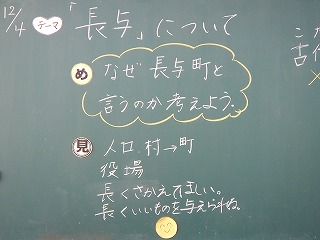 12/4 テーマ 「長与」について
め なぜ長与町と
言うのか考えよう。
見 人口、村→町
役場
長くさかえてほしい。
長くいいものを与えられね。
古代